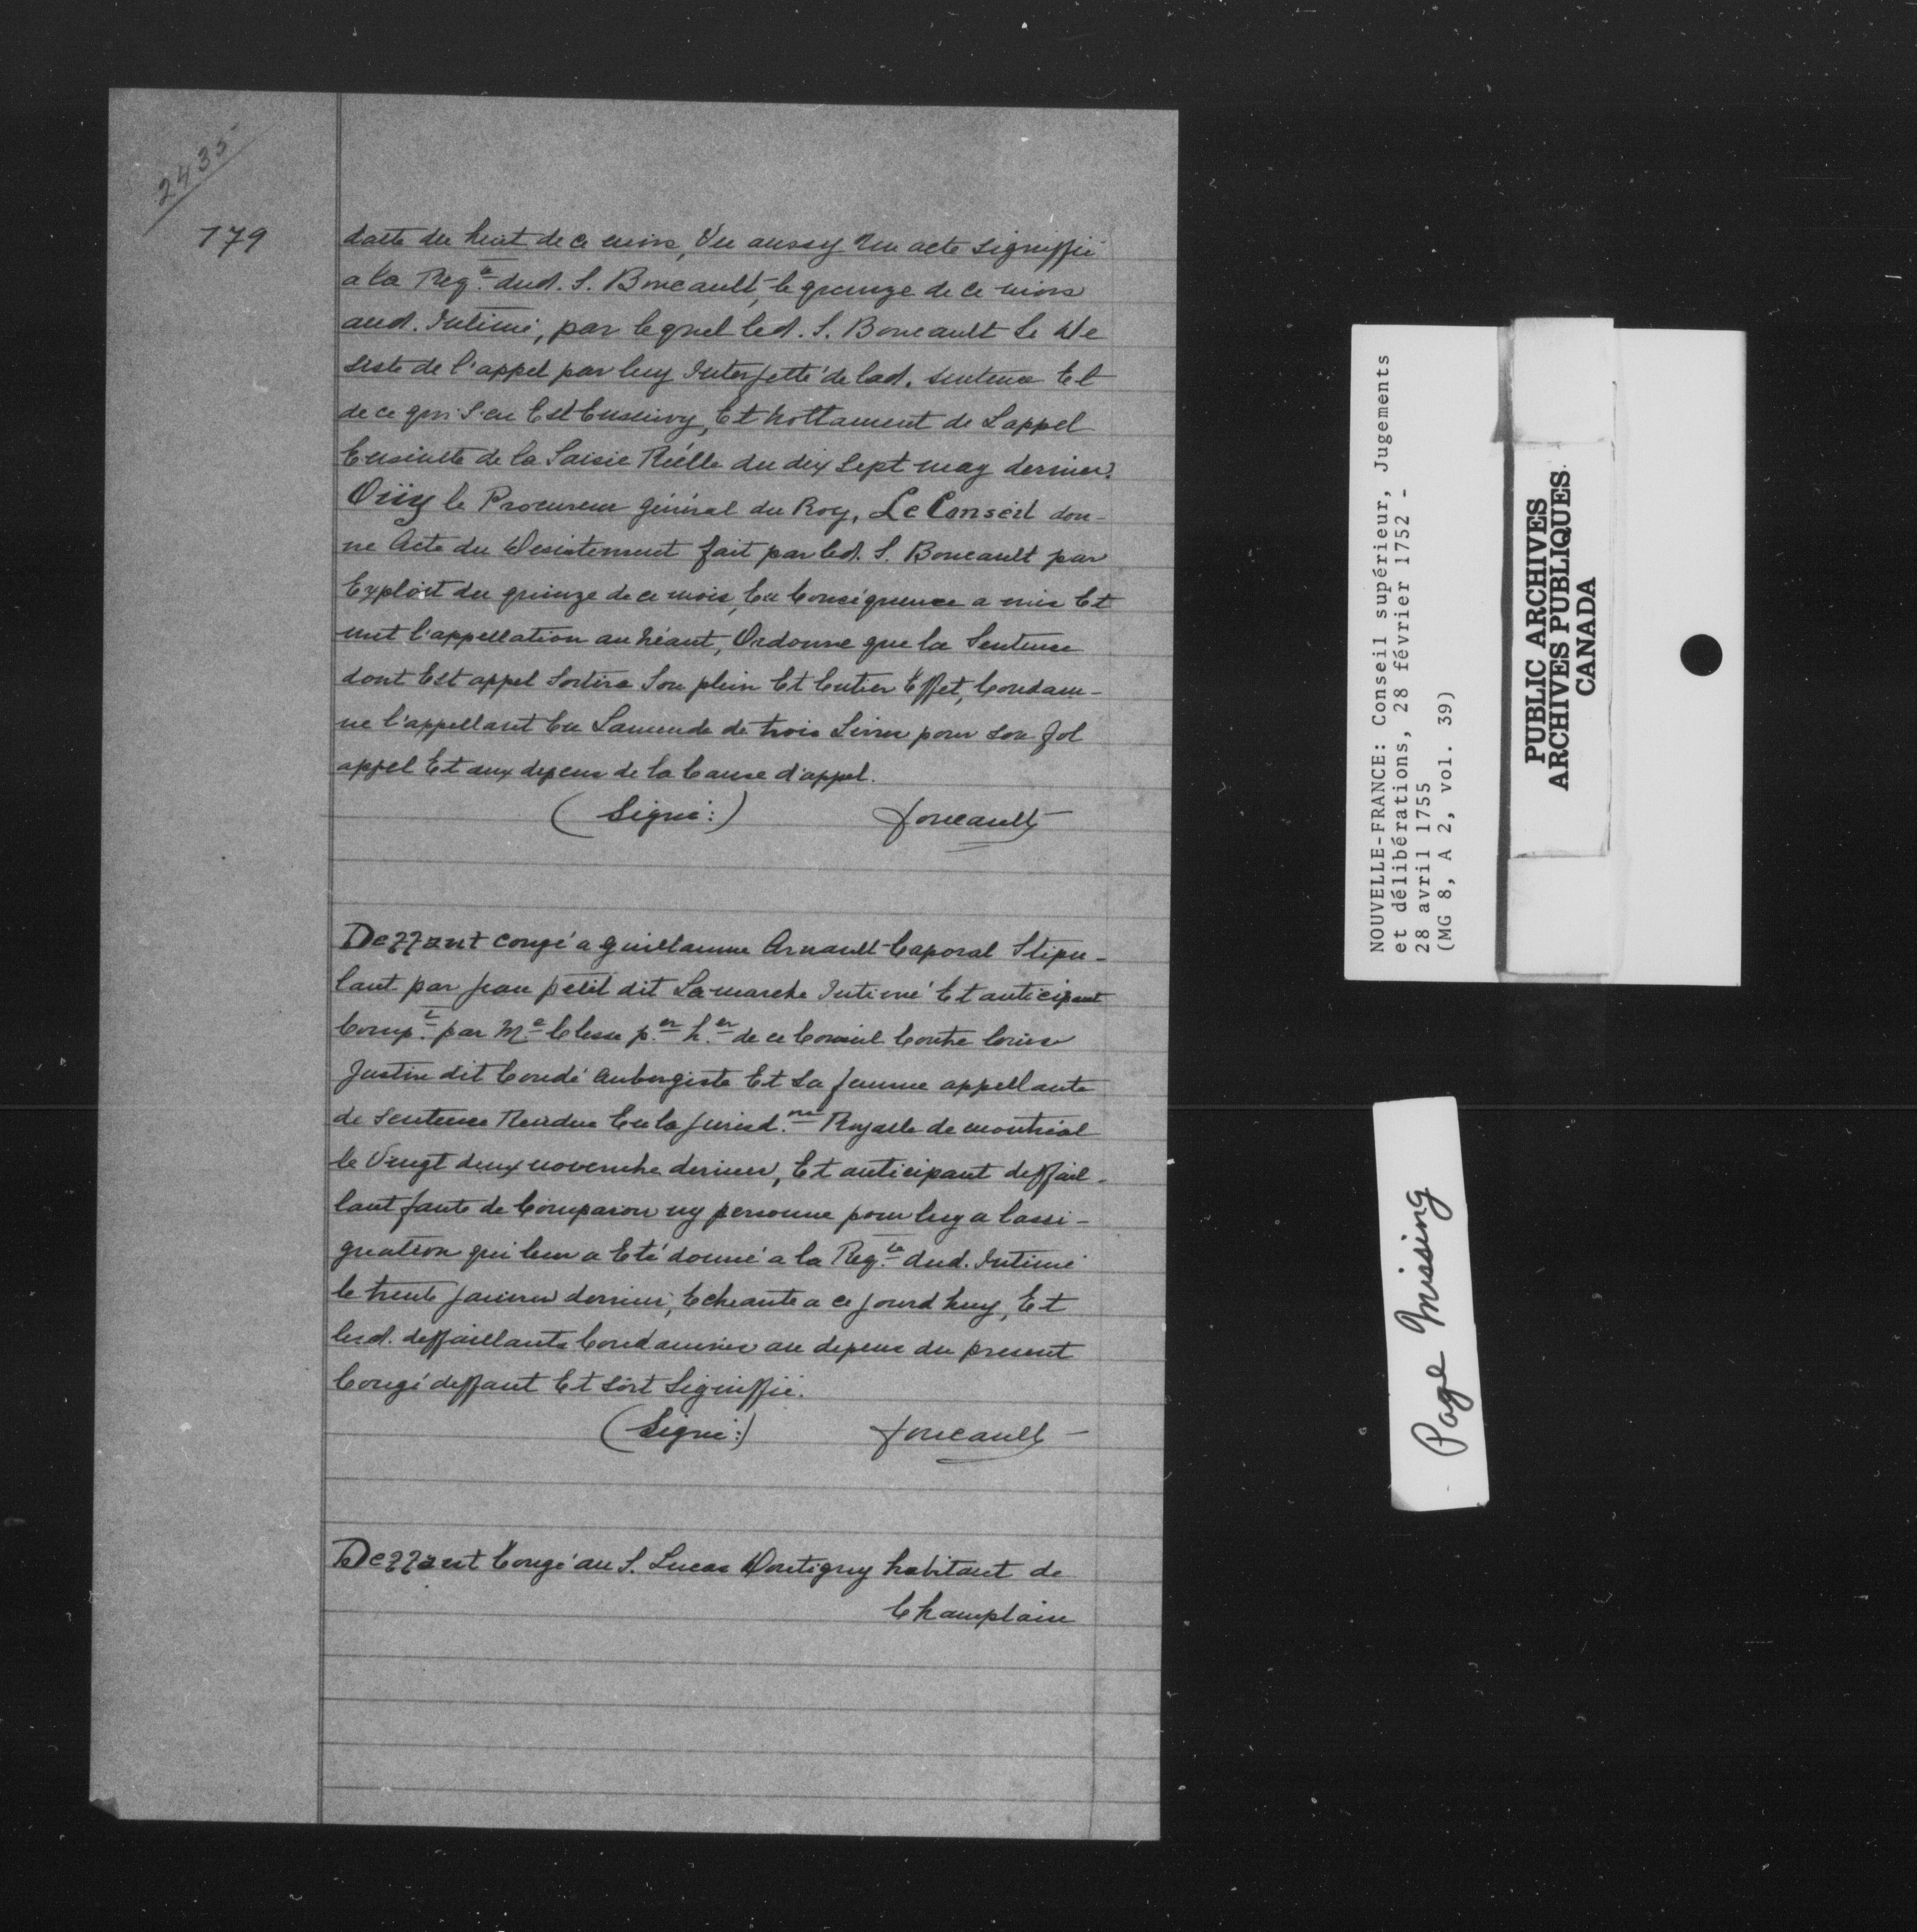 2435
179
datte du huit de ce mois, Vu aussy Un acte signiffié
a la Req.te dud. S. Boucault, le quinze de ce mois
aud. Intimé, par lequel led. S. Boucault se De
siste de l'appel par luy Interjetté de lad. sentence Et
de ce qui S'en Est Ensuivy, Et nottament de L'appel
Ensuitte de la Saisie Réelle du dix sept may dernier.
Oüy le Procureur général du Roy, Le Conseil don-
ne Acte du Desistement fait par led. S. Boucault par
Exploit du quinze de ce mois, En Conséquence a mis Et
met l'appellation au Néant, Ordonne que la Sentence
dont Est appel Sortira Son plein Et Entier Effet, Condam-
ne l'appellant En Lamende de trois Livres pour son fol
appel Et aux depens de la Cause d'appel.
(Signé:) foucault
Deffaut congé a guillaume Arnault Caporal Stipu-
lant par jean petit dit Lamarche Intimé Et anticipant
Comp.t par M.e Clesse p.er h.er de ce Conseil Contre louis
Justin dit Condé Aubergiste Et Sa femme appellants
de sentence Rendue En la jurisd.on Royalle de montréal
le Vingt deux novembre dernier, Et anticipant deffail-
lant faute de Comparoir ny personne pour luy a lassi-
gnation qui leur a Eté donné a la Req.te dud. Intimé
le trente janvier dernier, Echeante a ce jourd huy, Et
lesd. deffaillants Condamnés au depens du present
Congé deffaut Et soit Signiffié.
(Signé:) foucault
Deffaut Congé au S. Lucas Dontigny habitant de
Champlain
NOUVELLE-FRANCE: Conseil supérieur, Jugements
et délibérations, 28 février 1752 -
28 avril 1755
(MG 8, A 2, vol. 39)
PUBLIC ARCHIVES
ARCHIVES PUBLIQUES
CANADA
Page Missing